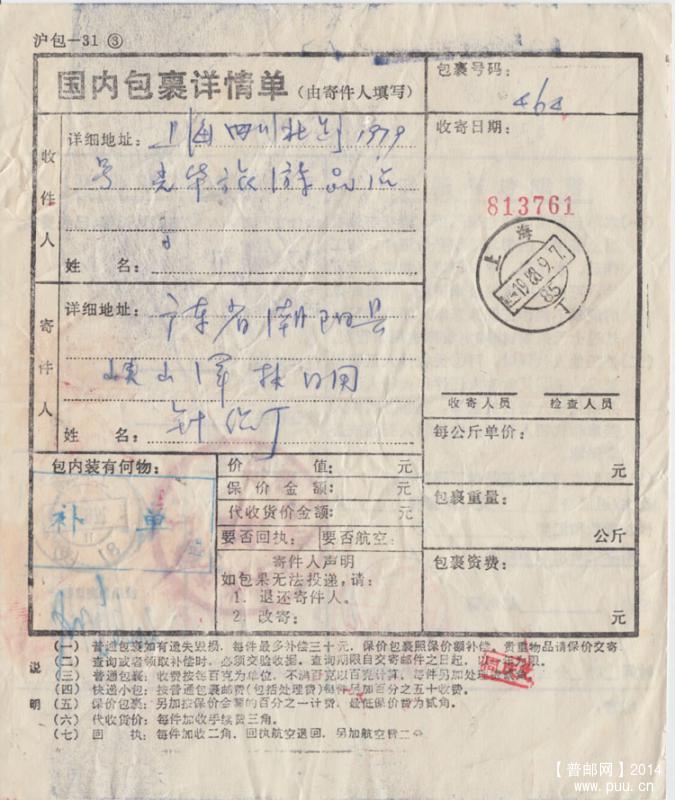 沪包—31 ③
国内包裹详情单（由寄件人填写）
包裹号码：
464
收件人
详细地址：上海四川北路1979
号 光华旅游品店
姓 名：
收寄日期：
813761
上海
1988.9.7.
85
T
寄件人
详细地址：广东省潮阳县
峡山
姓 名：
收寄人员 检查人员
包内装有何物：
补单
18
价 值： 元
保价金额： 元
代收货价金额： 元
要否回执： 要否航空：
寄件人声明
如包裹无法投递，请：
1. 退还寄件人。
2. 改寄：
每公斤单价：
元
包裹重量：
公斤
包裹资费：
元
说明
(一) 普通包裹如有遗失毁损，每件最多补偿三十元，保价包裹照保价额补偿，贵重物品请保价交寄
(二) 查询或者领取补偿时，必须交验收据。查询期限自交寄邮件之日起，以一年为限。
(三) 普通包裹：收费按每百克为单位，不满百克以百克计算，每件另加处理费
(四) 快递小包：按普通包裹邮费(包括处理费)每件另加百分之五十收费。
(五) 保价包裹：另加按保价金额的百分之一计费，最低保价费为贰角。
(六) 代收货价：每件加收手续费三角。
(七) 回 执：每件加收二角，回执航空退回，另加航空费二
【普邮网】2014
www.puu.cn